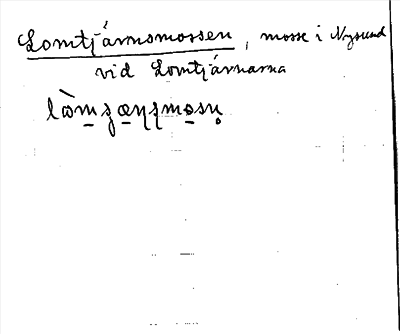 Lomtjärnsmossen, mosse i Nysund
vid Lomtjärnarna